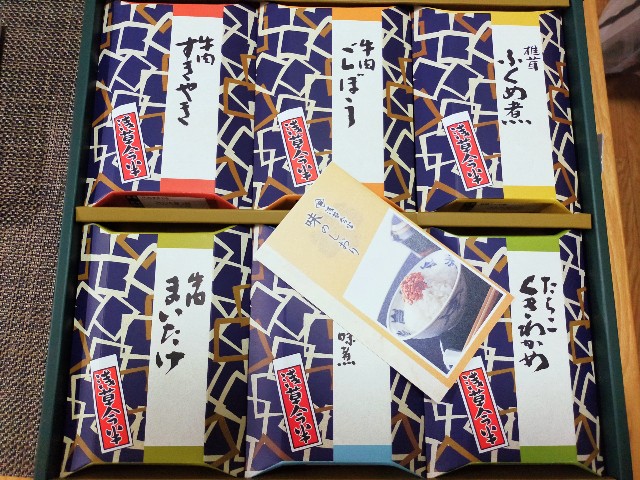 牛肉
すきやき
浅草今半
牛肉
ごぼう
浅草今半
椎茸
ふくめ煮
浅草今半
味のしおり
牛肉
まいたけ
浅草今半
味煮
浅草今半
たらこ
くきわかめ
浅草今半